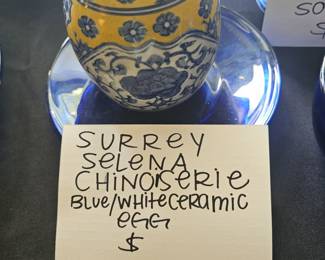 SO
SURREY
SELENA
CHINOISERIE
BLUE/WHITE CERAMIC
EGG
$